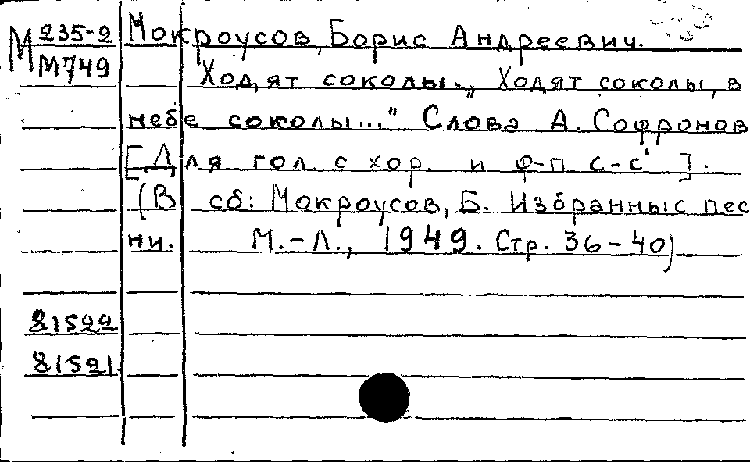 М 235-2 Мокроусов, Борис Андреевич.
М749 Ходят соколы. „Ходят соколы, в
небе соколы..." Слова А. Софронов
[Для гол. с хор. и ф-п. c-c¹].
(В сб: Мокроусов, Б. Избранные пес
ни. М.-Л., 1949. Стр. 36-40)
81522
81521